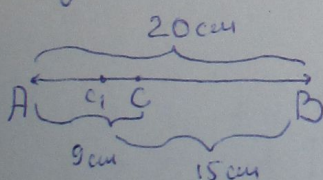 20см
A C₁ C B
9см
15см